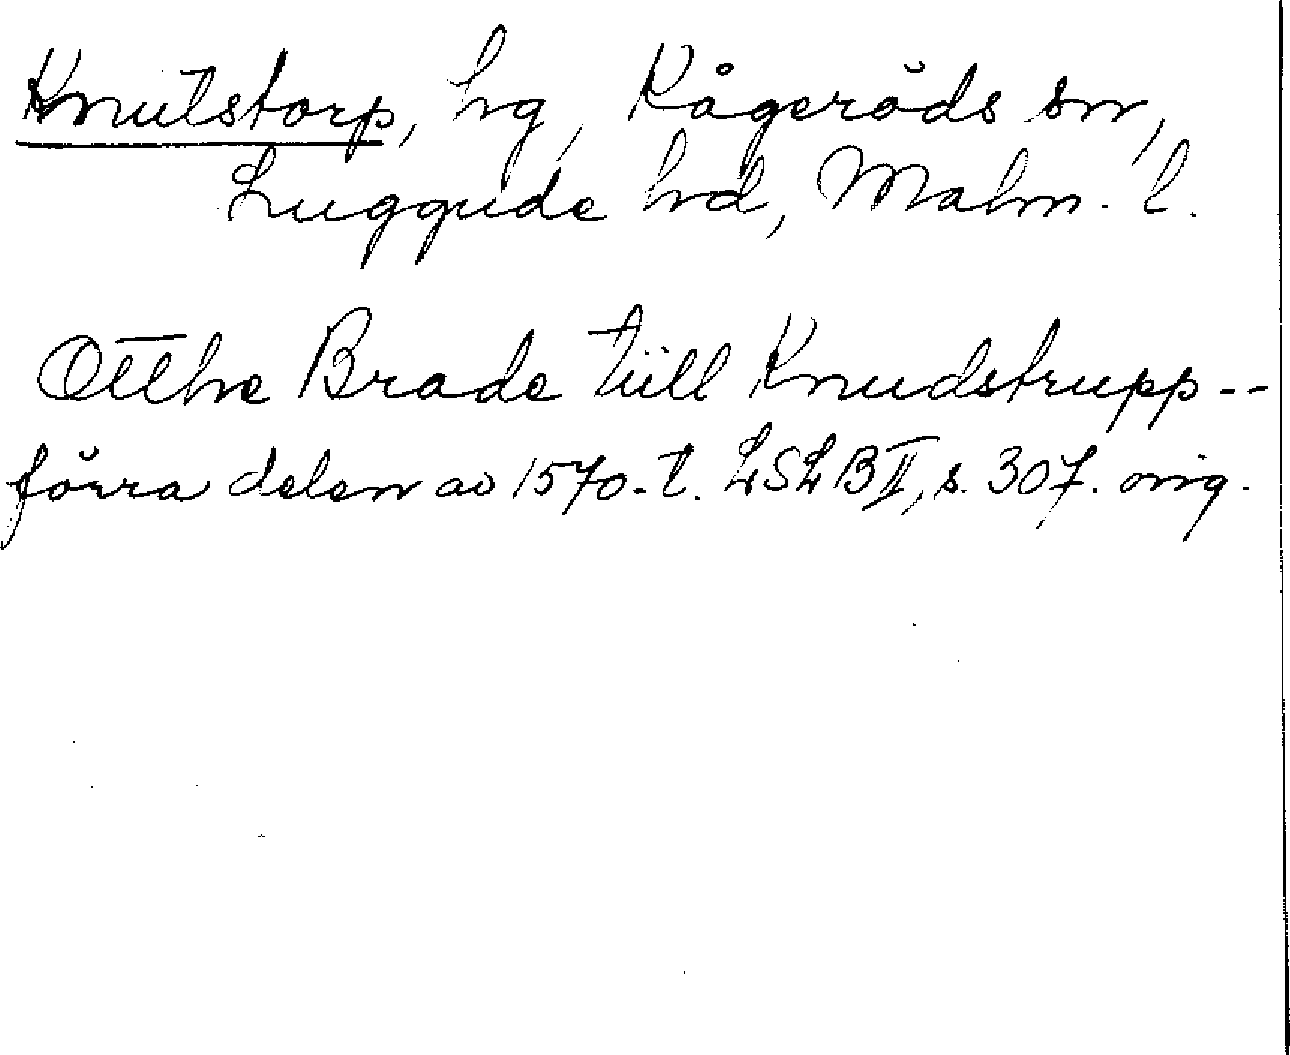 Knutstorp, hg, Kågeröds sn,
Luggude hd, Malm. l.
Otthe Brade tiill Knudstrupp --
förra delen av 1570-t. LSLB II, s. 307. orig.